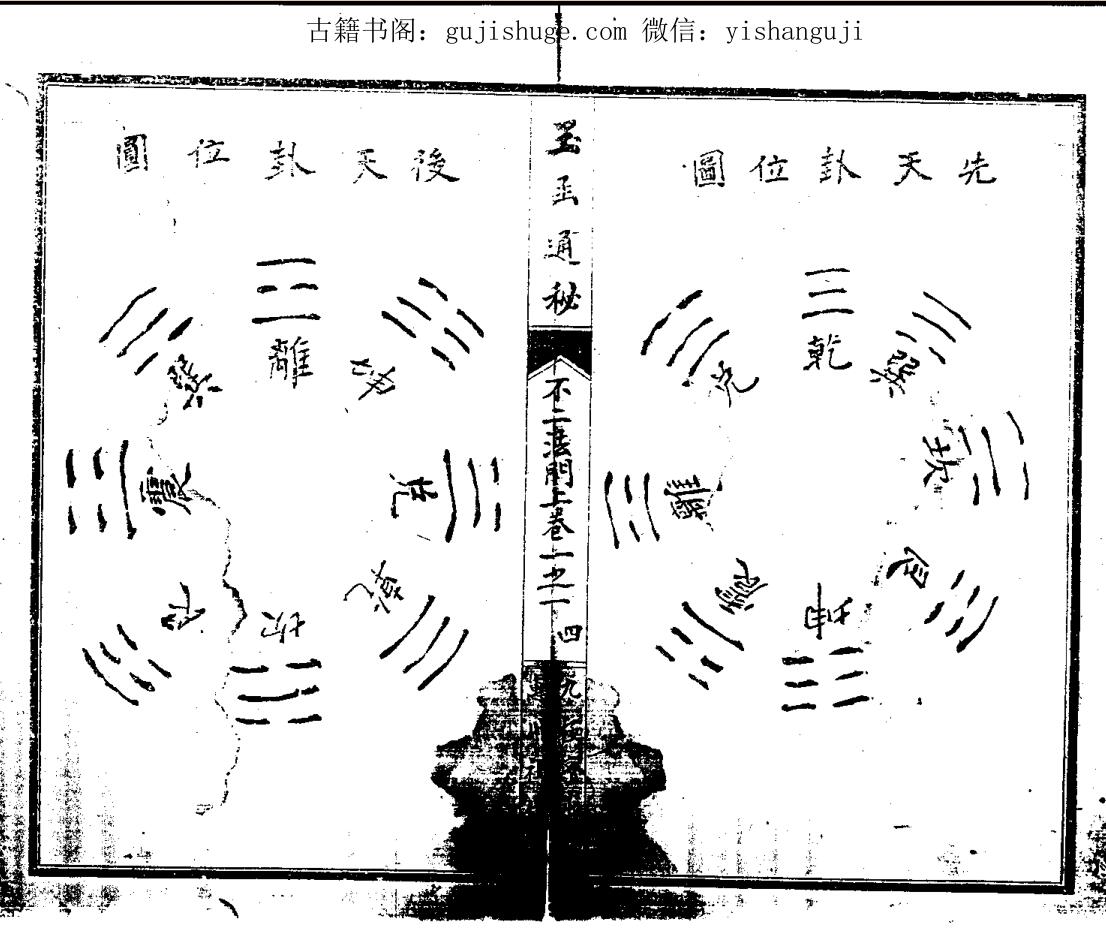 古籍书阁：gujishuge.com 微信：yishanguji
先天卦位圖
乾
巽
坎
艮
坤
震
離
兌
玉函通秘
不二法門上卷一之一 四
後天卦位圓
離
坤
兌
乾
坎
艮
震
巽